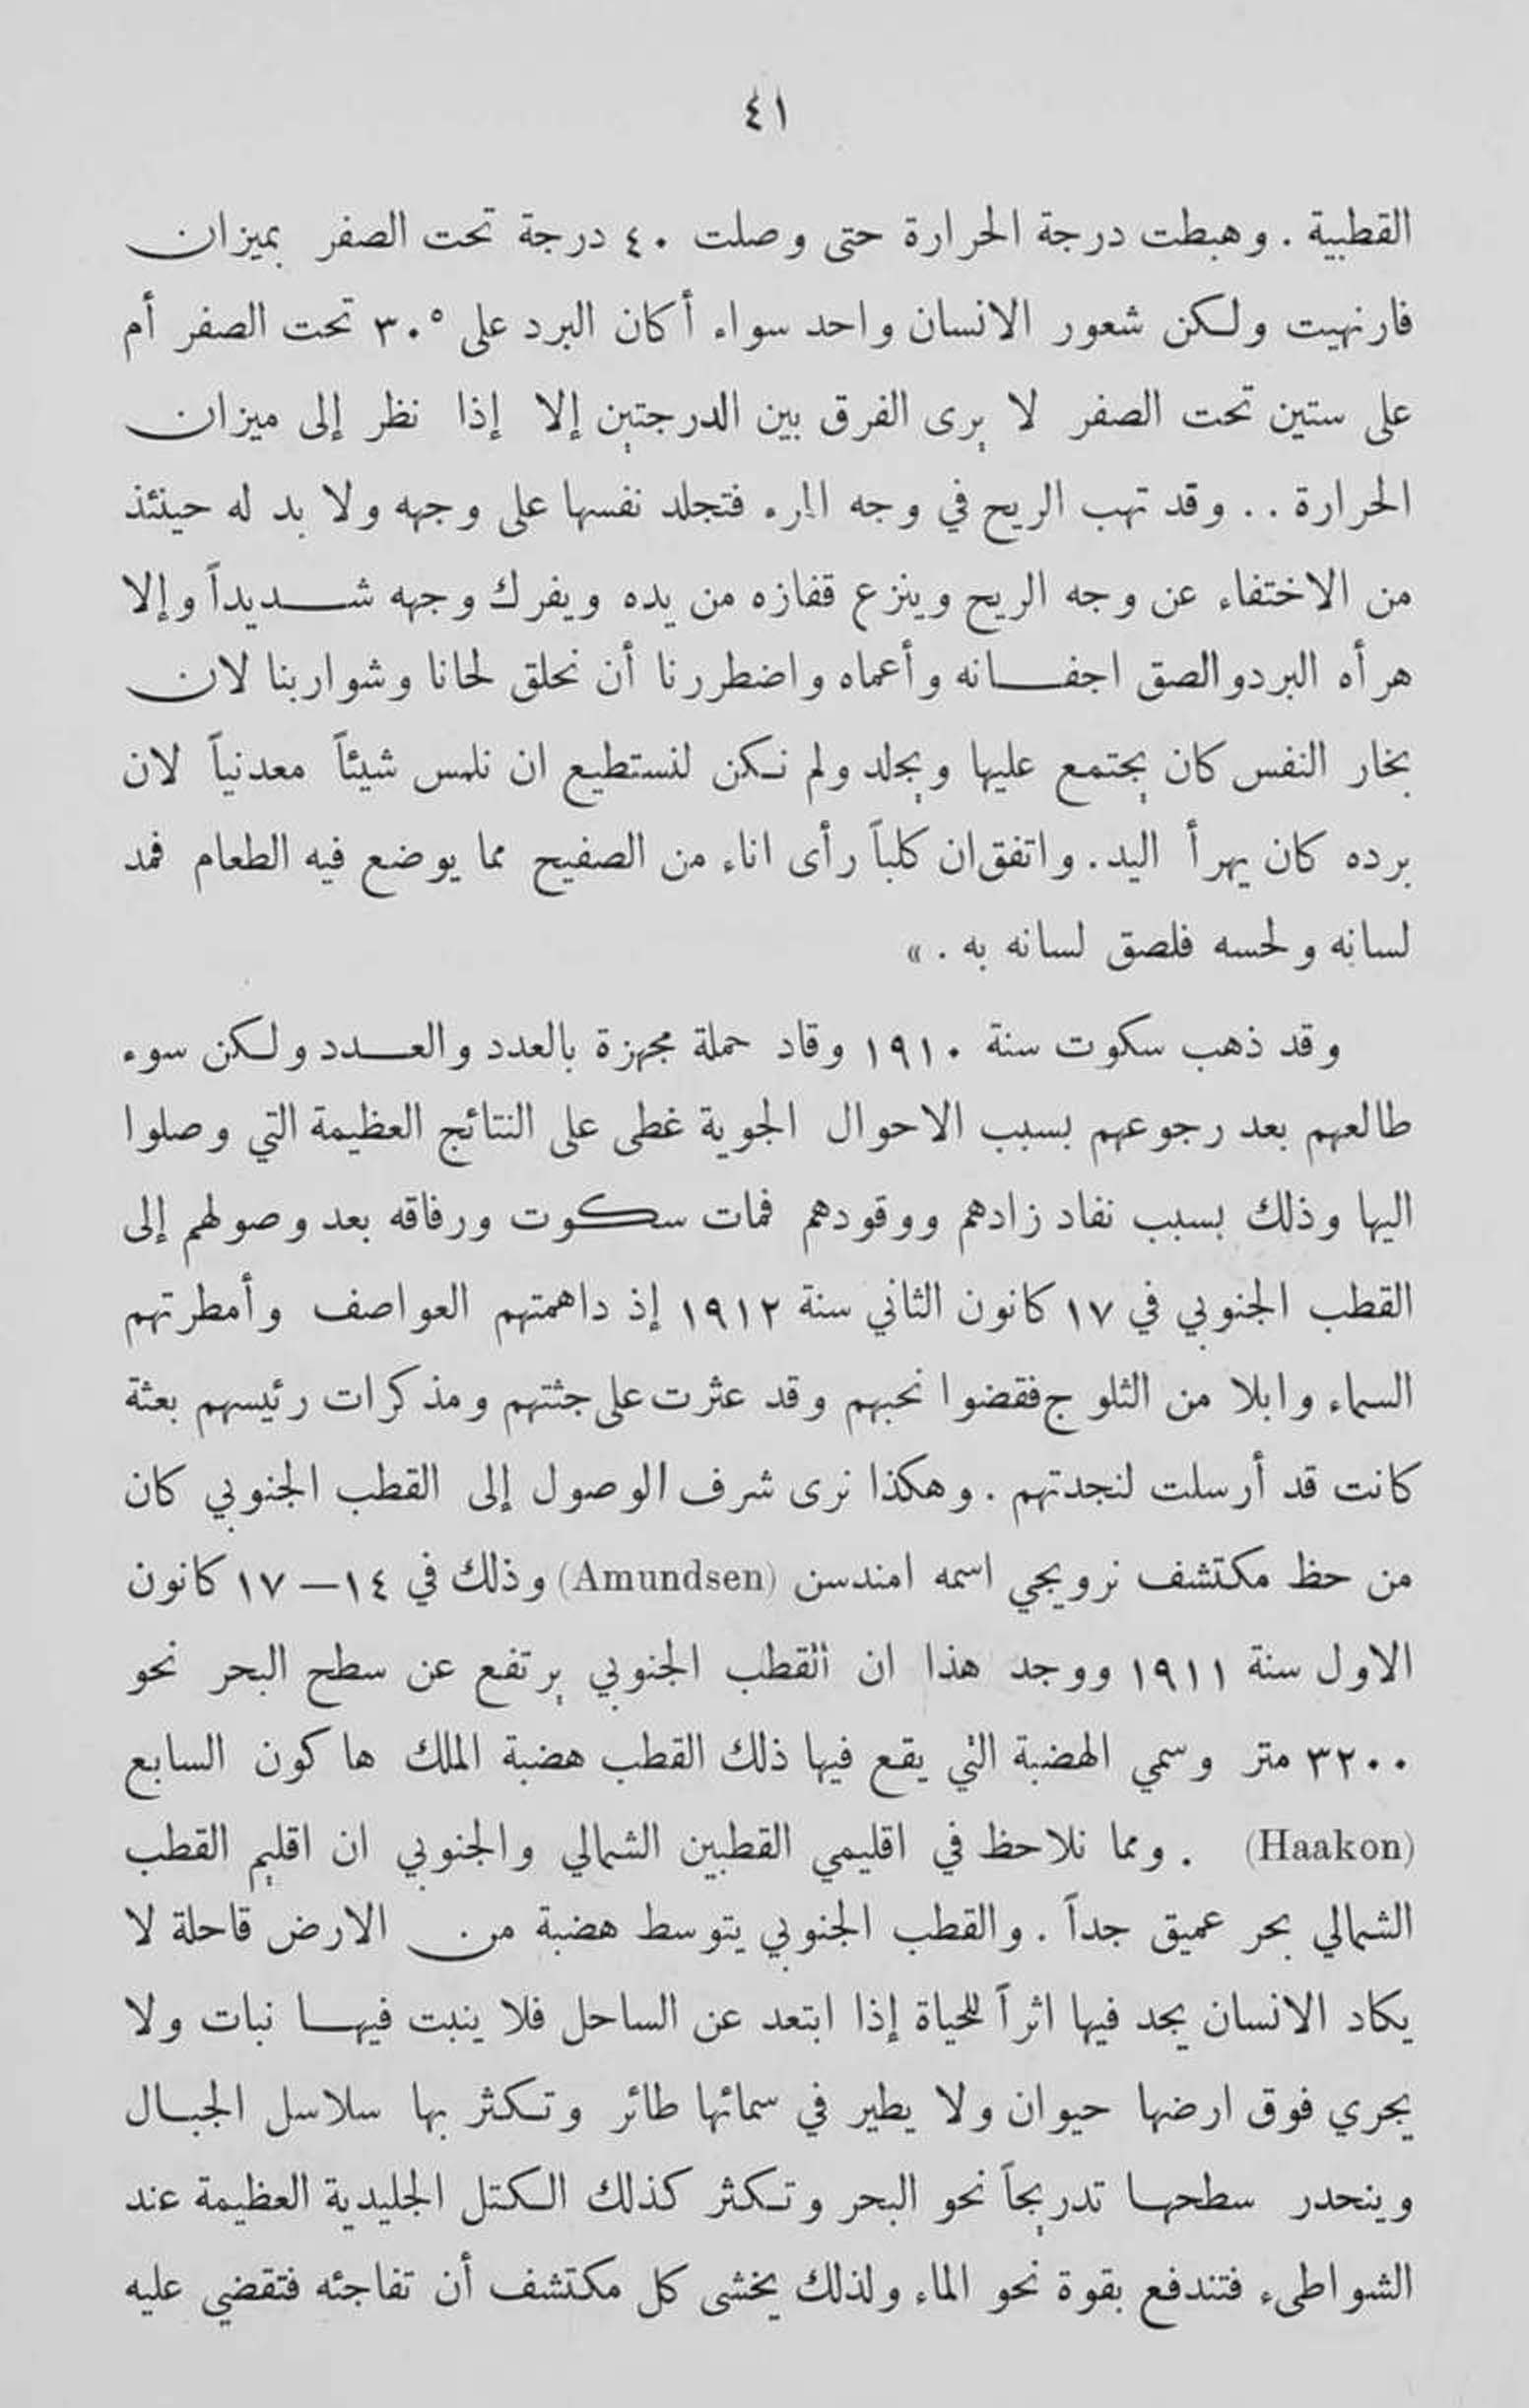 ٤١
القطبية . وهبطت درجة الحرارة حتى وصلت ٤٠ درجة تحت الصفر بميزان
فارنهيت ولكن شعور الانسان واحد سواء أكان البرد على ٣٠° تحت الصفر أم
على ستين تحت الصفر لا يرى الفرق بين الدرجتين إلا إذا نظر إلى ميزان
الحرارة .. وقد تهب الريح في وجه المرء فتجلد نفسها على وجهه ولا بد له حينئذ
من الاختفاء عن وجه الريح وينزع قفازه من يده ويفرك وجهه شديداً وإلا
هرأه البرد والصق اجفانه وأعماه واضطررنا أن نحلق لحانا وشواربنا لان
بخار النفس كان يجتمع عليها ويجلد ولم نكن لنستطيع ان نلمس شيئاً معدنياً لان
برده كان يهرأ اليد . واتفق ان كلباً رأى اناء من الصفيح مما يوضع فيه الطعام فمد
لسانه ولحسه فلصق لسانه به . »
وقد ذهب سكوت سنة ١٩١٠ وقاد حملة مجهزة بالعدد والعدد ولكن سوء
طالعهم بعد رجوعهم بسبب الاحوال الجوية غطى على النتائج العظيمة التي وصلوا
اليها وذلك بسبب نفاد زادهم ووقودهم فمات سكوت ورفاقه بعد وصولهم إلى
القطب الجنوبي في ١٧ كانون الثاني سنة ١٩١٢ إذ داهمتهم العواصف وأمطرتهم
السماء وابلا من الثلوج فقضوا نحبهم وقد عثرت على جثتهم ومذكرات رئيسهم بعثة
كانت قد أرسلت لنجدتهم . وهكذا نرى شرف الوصول إلى القطب الجنوبي كان
من حظ مكتشف نرويجي اسمه امندسن (Amundsen) وذلك في ١٤ – ١٧ كانون
الاول سنة ١٩١١ ووجد هذا ان القطب الجنوبي يرتفع عن سطح البحر نحو
٣٢٠٠ متر وسمي الهضبة التي يقع فيها ذلك القطب هضبة الملك هاكون السابع
(Haakon) . ومما نلاحظ في اقليمي القطبين الشمالي والجنوبي ان اقليم القطب
الشمالي بحر عميق جداً . والقطب الجنوبي يتوسط هضبة من الارض قاحلة لا
يكاد الانسان يجد فيها اثراً للحياة إذا ابتعد عن الساحل فلا ينبت فيها نبات ولا
يجري فوق ارضها حيوان ولا يطير في سمائها طائر وتكثر بها سلاسل الجبال
وينحدر سطحها تدريجاً نحو البحر وتكثر كذلك الكتل الجليدية العظيمة عند
الشواطىء فتندفع بقوة نحو الماء ولذلك يخشى كل مكتشف أن تفاجئه فتقضي عليه